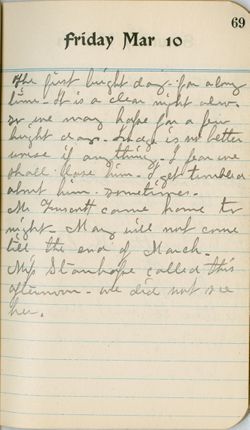 69
Friday Mar 10
The first bright day for a long
time. It is a clear night now
so we may hope for a few
bright days. is no better
worse if any thing. I fear we
shall lose him. I get troubled
about him sometimes.
Mr came home to
night. Mary will not come
till the end of March.
Miss Stanhope called this
afternoon. We did not see
her.